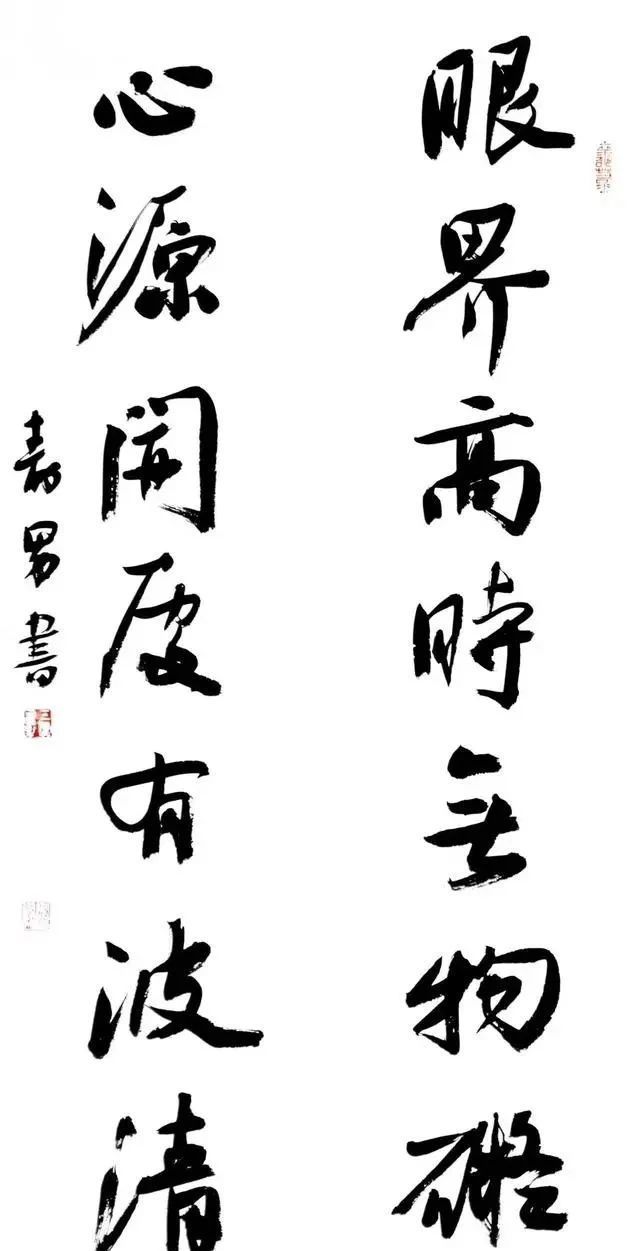 眼界高時無物礙
心源開處有波清
男書